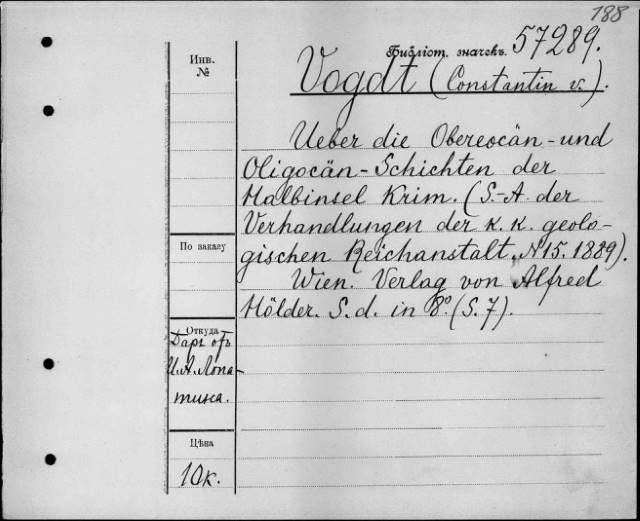 188
Библіот. значекъ. 57289.
Инв.
№
Vogdt (Constantin v.).
Ueber die Obereocän-und
Oligocän-Schichten der
Halbinsel Krim. (S.-A. der
Verhandlungen der k. k. geolo-
gischen Reichanstalt. N15. 1889).
Wien. Verlag von Alfred
Hölder. S. d. in 8º. (S. 7).
По заказу
Откуда
Даръ отъ
И. А. Лопа-
тина.
Цѣна
10 к.